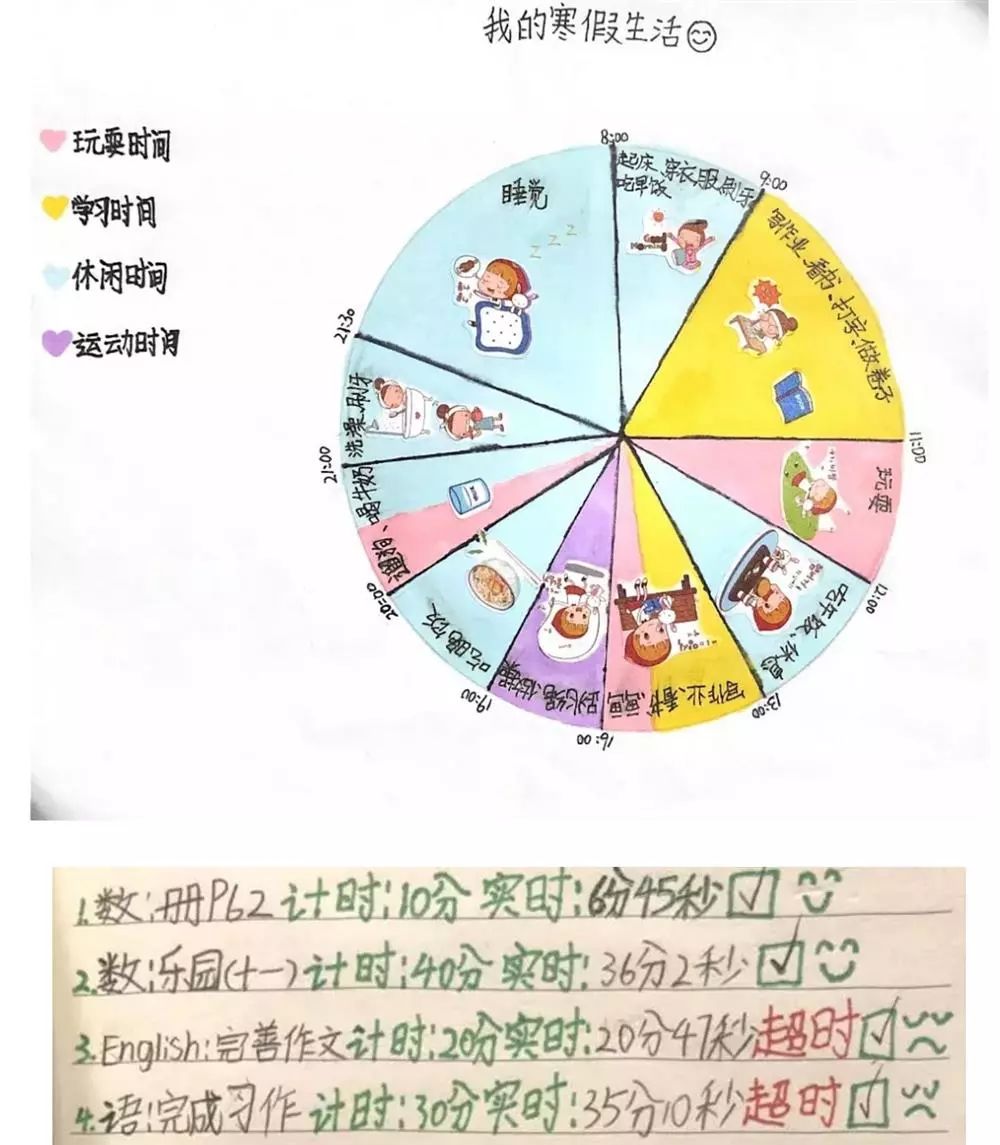 我的寒假生活
玩耍时间
学习时间
休闲时间
运动时间
8:00
起床、穿衣服、刷牙
吃早饭
Morning
9:00
写作业、看书、打字、做卷子
11:00
玩耍
12:00
吃午饭、休息
13:00
写作业、看书、画画
16:00
19:00
吃晚饭
20:00
遛狗、喝牛奶
21:00
洗澡、刷牙
21:30
睡觉
z z z
1.数:册P62 计时:10分 实时:6分45秒
2.数:乐园(十一) 计时:40分 实时:36分2秒
3.English:完善作文计时:20分实时:20分47秒超时
4.语:完成习作 计时:30分实时:35分10秒超时